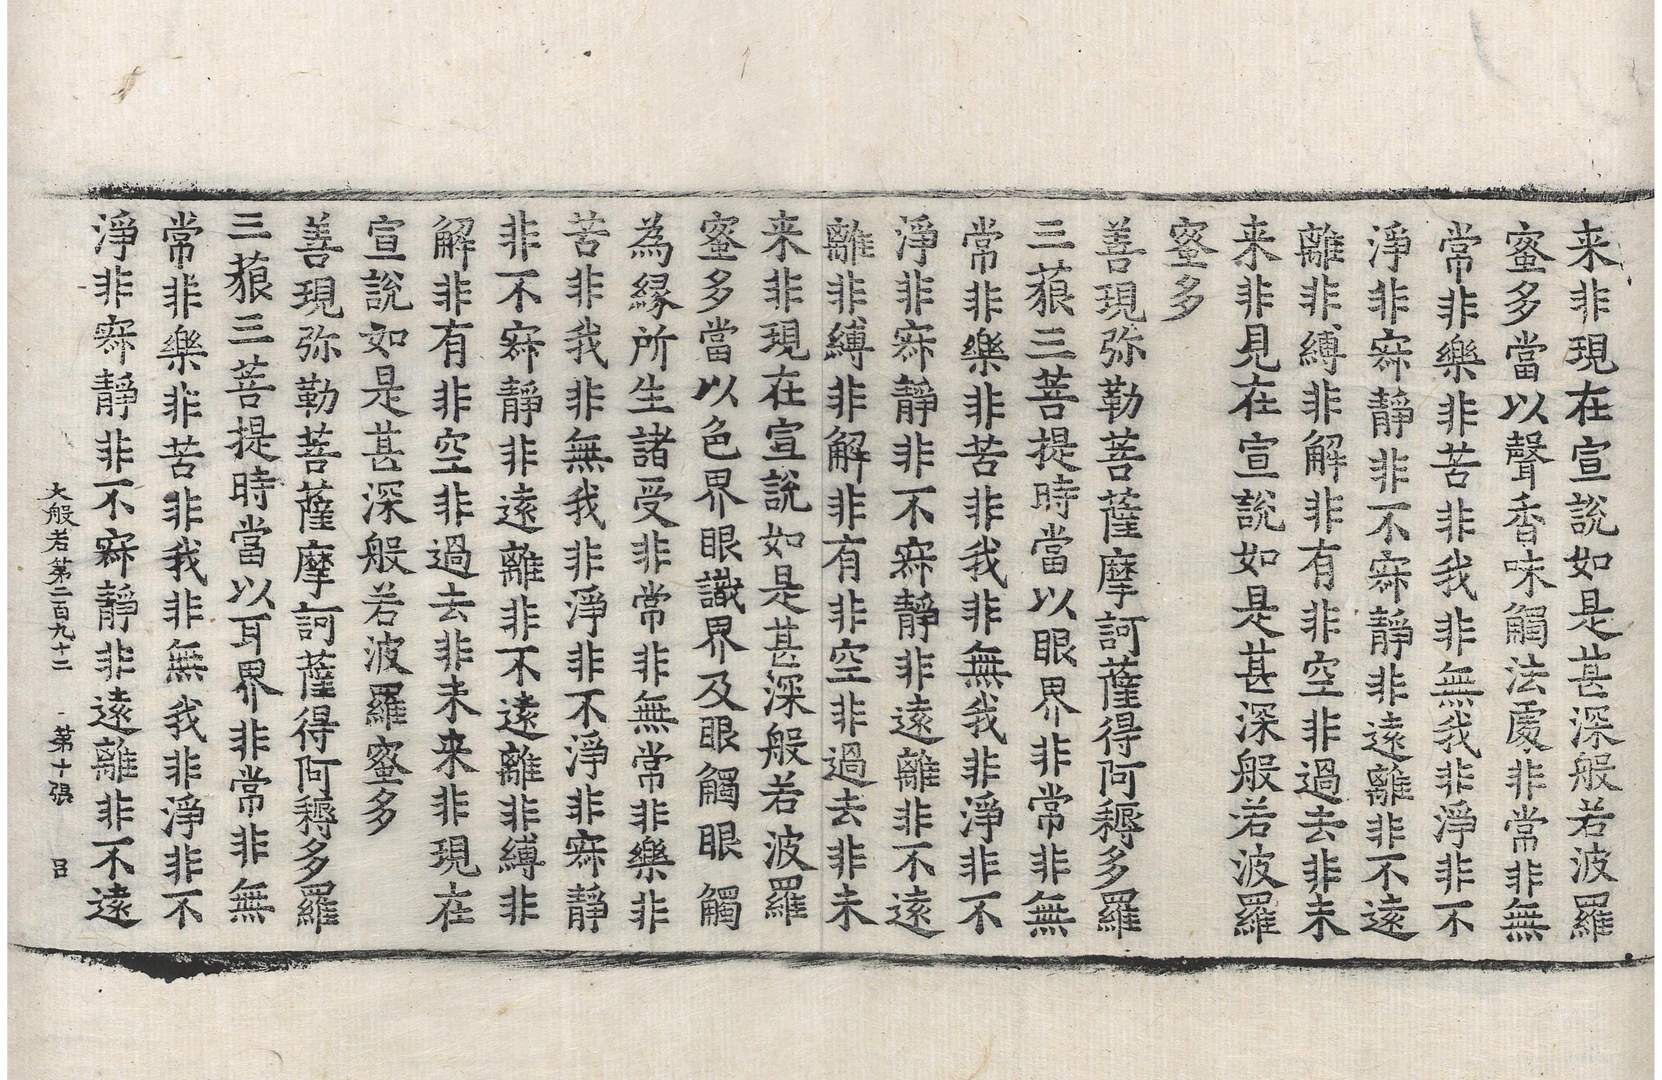 来非現在宣說如是甚深般若波羅
蜜多當以聲香味觸法處非常非無
常非樂非苦非我非無我非淨非不
淨非寂靜非不寂靜非遠離非不遠
離非縛非解非有非空非過去非未
来非見在宣說如是甚深般若波羅
蜜多
善現弥勒菩薩摩訶薩得阿耨多羅
三藐三菩提時當以眼界非常非無
常非樂非苦非我非無我非淨非不
淨非寂靜非不寂靜非遠離非不遠
離非縛非解非有非空非過去非未
来非現在宣說如是甚深般若波羅
蜜多當以色界眼識界及眼觸眼觸
為縁所生諸受非常非無常非樂非
苦非我非無我非淨非不淨非寂靜
非不寂靜非遠離非不遠離非縛非
解非有非空非過去非未来非現在
宣說如是甚深般若波羅蜜多
善現弥勒菩薩摩訶薩得阿耨多羅
三藐三菩提時當以耳界非常非無
常非樂非苦非我非無我非淨非不
淨非寂靜非不寂靜非遠離非不遠
大般若第二百九十二 第十張 吕